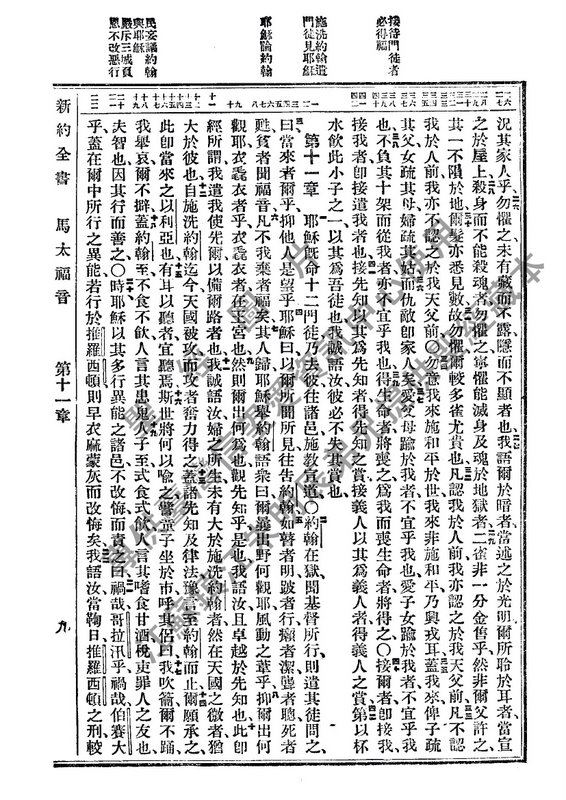 接待門徒者
必得福
施洗約翰遣
門徒見耶穌
耶穌論約翰
民妄議約翰
與耶穌
嚴斥三城負
恩不改惡行
況其家人乎勿懼之未有蔽而不露隱而不顯者也我語爾於暗者當述之於光明爾所聆於耳者當宣
之於屋上殺身而不能殺魂者勿懼之寧懼能滅身及魂於地獄者二雀非一分金售乎然非爾父許之
其一不隕於地爾髮亦悉見數故勿懼爾較多雀尤貴也凡認我於人前我亦認之於我天父前凡不認
我於人前我亦不認之於我天父前〇勿意我來施和平於世我來非施和平乃興戎耳蓋我來俾子疏
其父女疏其母婦疏其姑而仇敵卽家人矣愛父母踰於我者不宜乎我也愛子女踰於我者不宜乎我
也不負其十架而從我者亦不宜乎我也得生命者將喪之爲我而喪生命者將得之〇接爾者卽接我
接我者卽接遣我者也接先知以其爲先知者得先知之賞接義人以其爲義人者得義人之賞第以杯
水飲此小子之一以其爲吾徒也我誠語汝彼必不失其賞也
第十一章 耶穌旣命十二門徒乃去彼往諸邑施教宣道〇約翰在獄聞基督所行則遣其徒問之
曰當來者爾乎抑他人是望乎耶穌曰以爾所聞所見往告約翰如瞽者明跛者行癩者潔聾聰死者
甦貧者聞福音凡不我棄者福矣其人歸耶穌擧約翰語衆曰爾曩出野何觀耶風動之葦乎抑爾出何
觀耶衣毳衣者乎衣毳衣者在王宮也然則爾出何爲也觀先知乎是也我語汝且卓越於先知也此卽
經所謂我遣我使先爾以備爾路者也我誠語汝婦之所生未有大於施洗約翰者然在天國之微者猶
大於彼也自施洗約翰迄今天國被攻而攻者奮力得之蓋諸先知及律法豫言至約翰而止爾願承之
此卽當來之以利亞也有耳以聽者宜聽焉斯世將何以喩之譬童子坐於市呼其侶曰我吹籥爾不踊
我舉哀爾不擗蓋約翰至不食不飲人言其患鬼人子至式食式飲人言其嗜食甘酒稅吏罪人之友也
夫智也因其行而善之〇時耶穌以其多行異能之諸邑不改悔而責之曰禍哉哥拉汛乎禍哉伯賽大
乎蓋在爾中所行之異能若行於推羅西頓則早衣麻蒙灰而改悔矣我語汝當鞫日推羅西頓之刑較
新約全書 馬太福音 第十一章 九